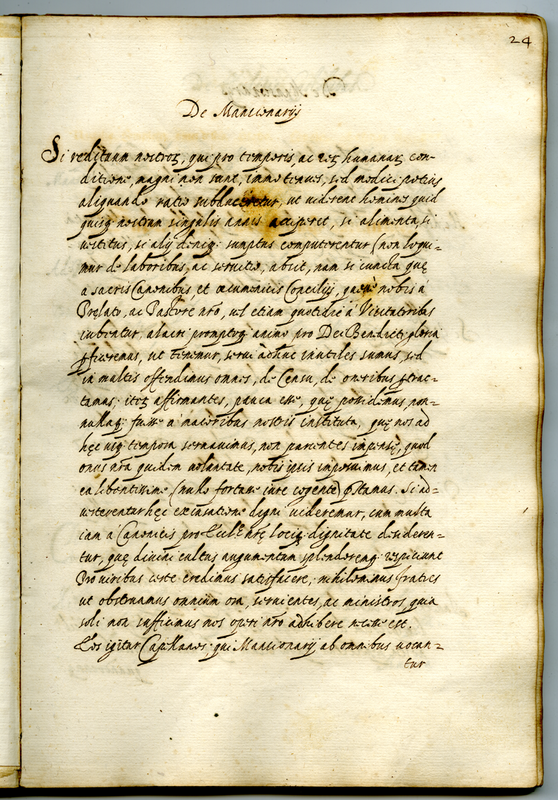 24
De Mancionarijs
Si redituum nostroꝝ, qui pro temporis, ac reꝝ humanaꝝ con-
ditione, magni non sunt, immo tenues, sed modici potius
aliquando ratio subduceretur, ut viderent homines quid
quisq; nostrum singulis annis acciperet, si alimenta, si
vestitus, si alij deniq; sumptus computerentur (non loqui-
mur de laboribus, ac servitio, absit, nam si cuncta quę
a sacris Canonibus et œcumenicis Concilijs, quęve nobis à
Prelato, ac Pastore nr̃o, vel etiam quotidie à Visitatoribus
iubentur, alacri promptoq; animo pro Dei Benedicti gloria
ꝑficeremus, ut tenemur, servi adhuc inutiles sumus, sed
in multis offendimus omnes, de Censu, de oneribus ꝑtrac-
tamus; itaq; affirmantes, pauca esse, quę possidemus, non-
nullaq; fuisse a maioribus nostris instituta, quę nos ad
hęc usq; tempora servavimus, non parcentes impensę, quod
onus nr̃a quidem voluntate, nobis ipsis imposuimus, et tamen
ea libentissime (nullo fortasse iure cogente) pr̃stamus. Si ad-
verterentur hęc excusatione digni videremur, cum multa
iam à Canonicis pro Eccl.ę nr̃ę lociq; dignitate desideren-
tur, quę divini cultus augumentum splendoremq; respiciunt
Pro viribus certe credimus satisfacere, nihilominus fratres
ut obstruamus omnium ora, servientes, ac ministros quia
soli non sufficimus nos operi nr̃o adhibere necesse est.
Eos igitur Capellanos, qui Mancionarij ab omnibus vocan-
tur